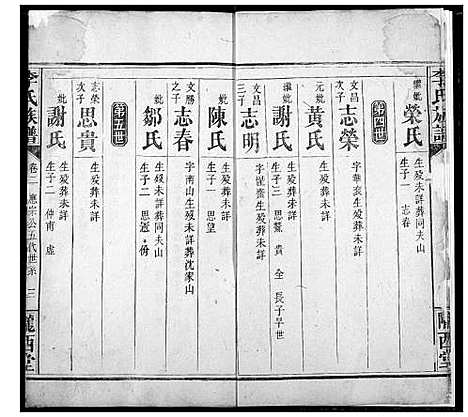 李氏族譜
隴西堂
繼妣
榮氏
生歿未詳葬同夫山
生子一 志春
第四世
文昌
次子
志榮
字華
生歿葬未詳
元妣
黃氏
生歿葬未詳
繼妣
謝氏
生歿葬未詳
生子三 思 貴 全 長子早世
文昌
三子
志明
生歿葬未詳
妣
陳氏
生歿葬未詳
生子一 思望
文勝
之子
志春
字南山生歿未詳葬沈家山
妣
鄒氏
生歿未詳葬同夫山
生子二 思
第五世
志榮
次子
思貴
生歿葬未詳
妣
謝氏
生歿葬未詳
生子二 仲南 虛
李氏族譜
卷二 應宗公五代世系 三
隴西堂